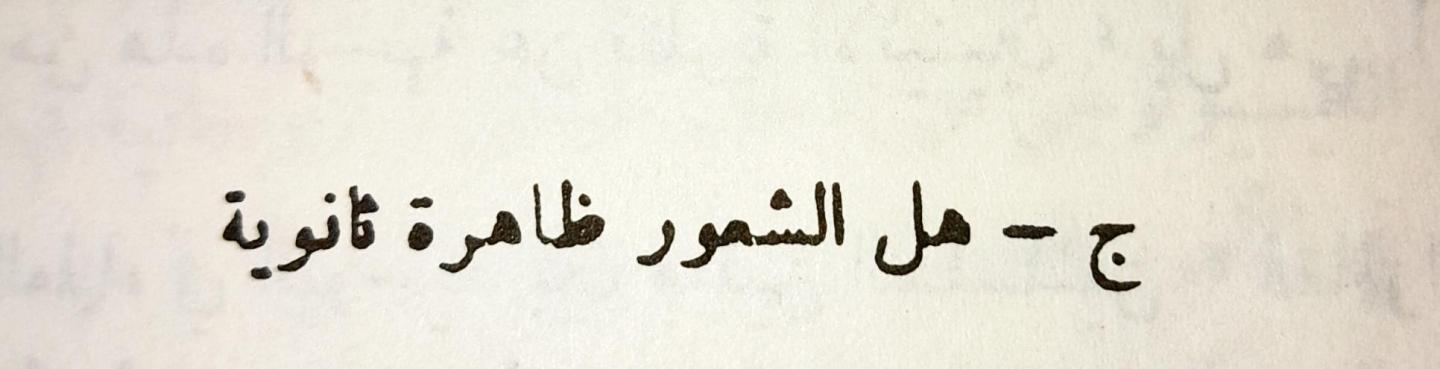 ج – هل الشعور ظاهرة ثانوية